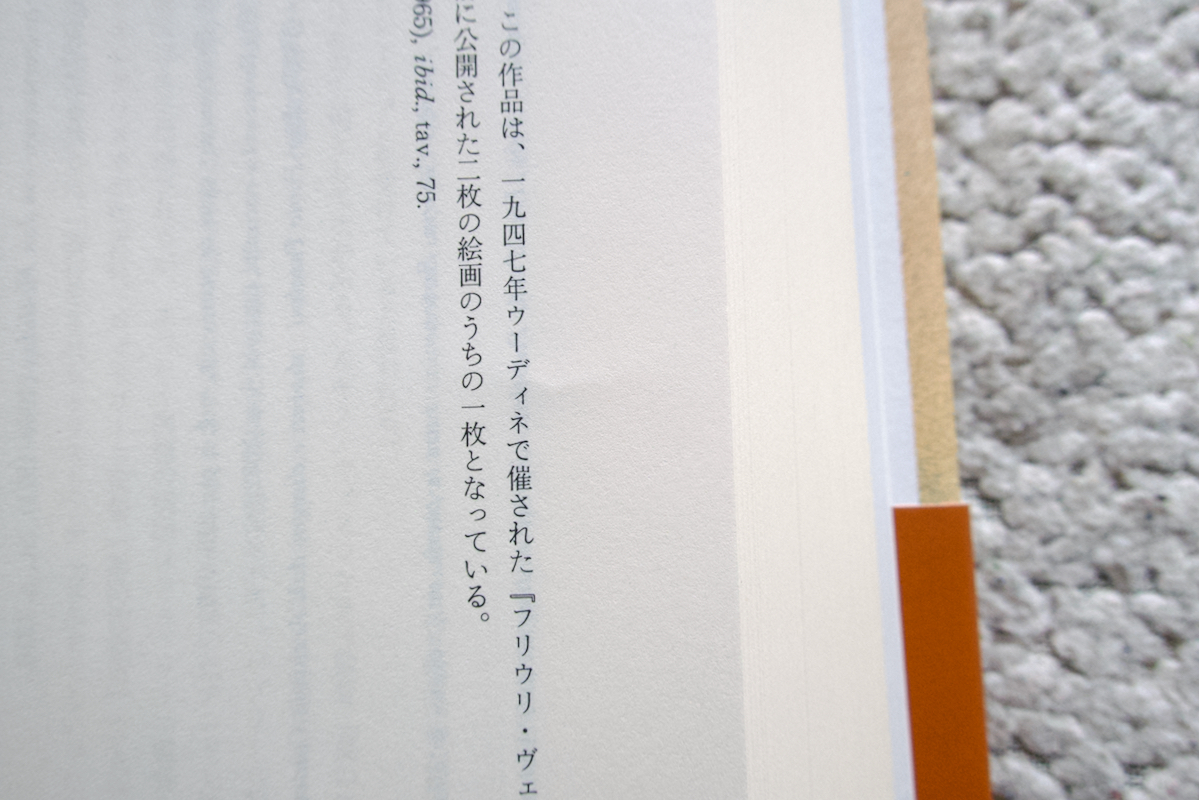 この作品は、一九四七年ウーディネで催された『フリウリ・ヴェ
に公開された二枚の絵画のうちの一枚となっている。
965), ibid., tav., 75.